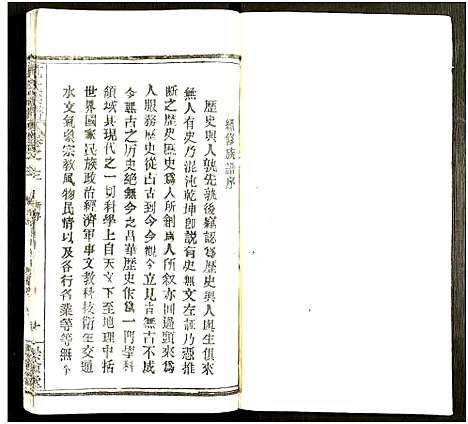 續修族譜序
歷史與人孰先孰後竊認為歷史與人與生俱來
無人有史乃混沌乾坤卽說有史無文左証乃憑推
斷之歷史歷史為人所創為人所叙亦回過頭來為
人服務歷史從古古到今今觀今立見旹無古不成
今無古之历史絕無今之昌華歷史作為一門學科
領域具現代之一切科學上自天文下至地理中括
世界國家民族政治經濟軍事文教科技衛生交通
水文氣象宗教風物民情以及各行各業等等無不